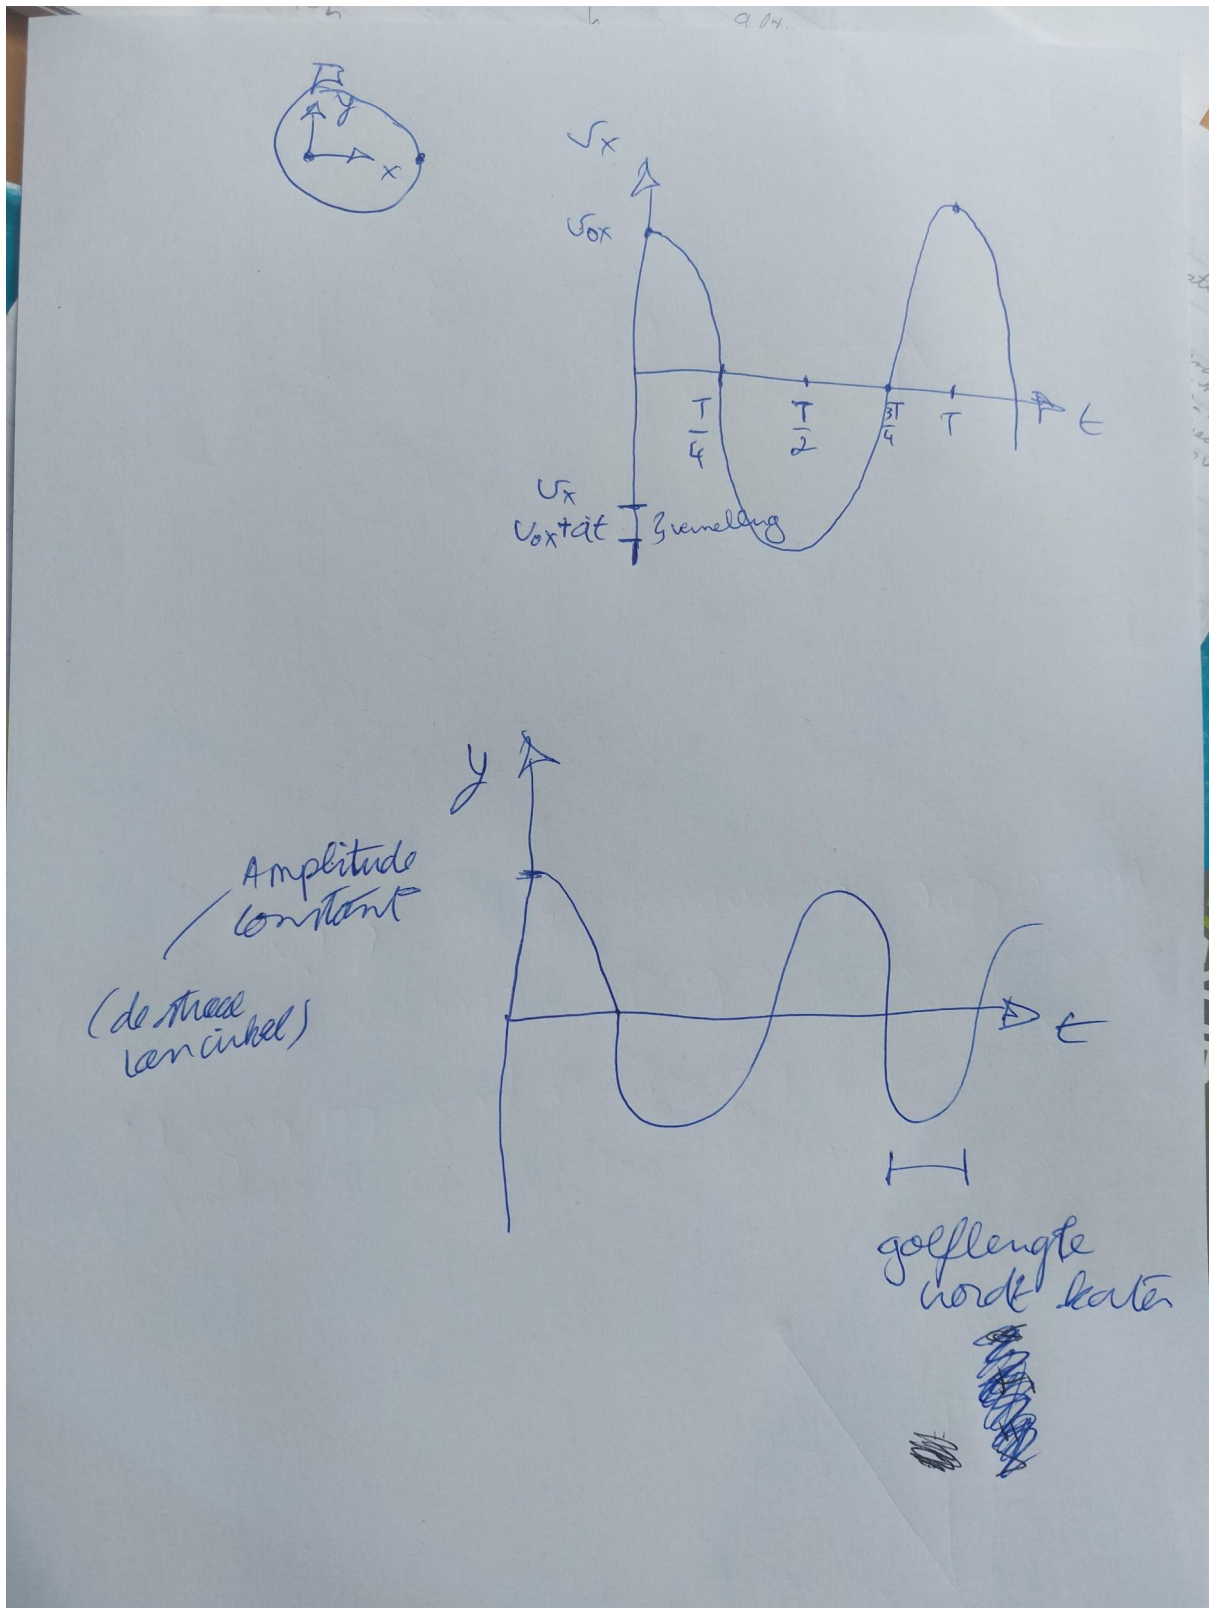 y
x
vx
v0x
T/4
T/2
3T/4
T
t
vx
v0x+at
versnelling
y
Amplitude
constant
(de straal
van cirkel)
t
golflengte
wordt korter